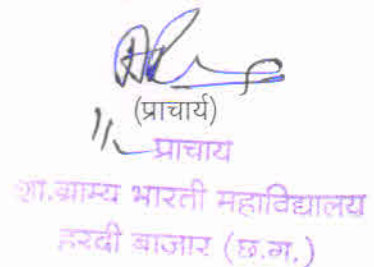 (प्राचार्य)
प्राचार्य
शा.ग्राम्य भारती महाविद्यालय
हरदी बाजार (छ.ग.)